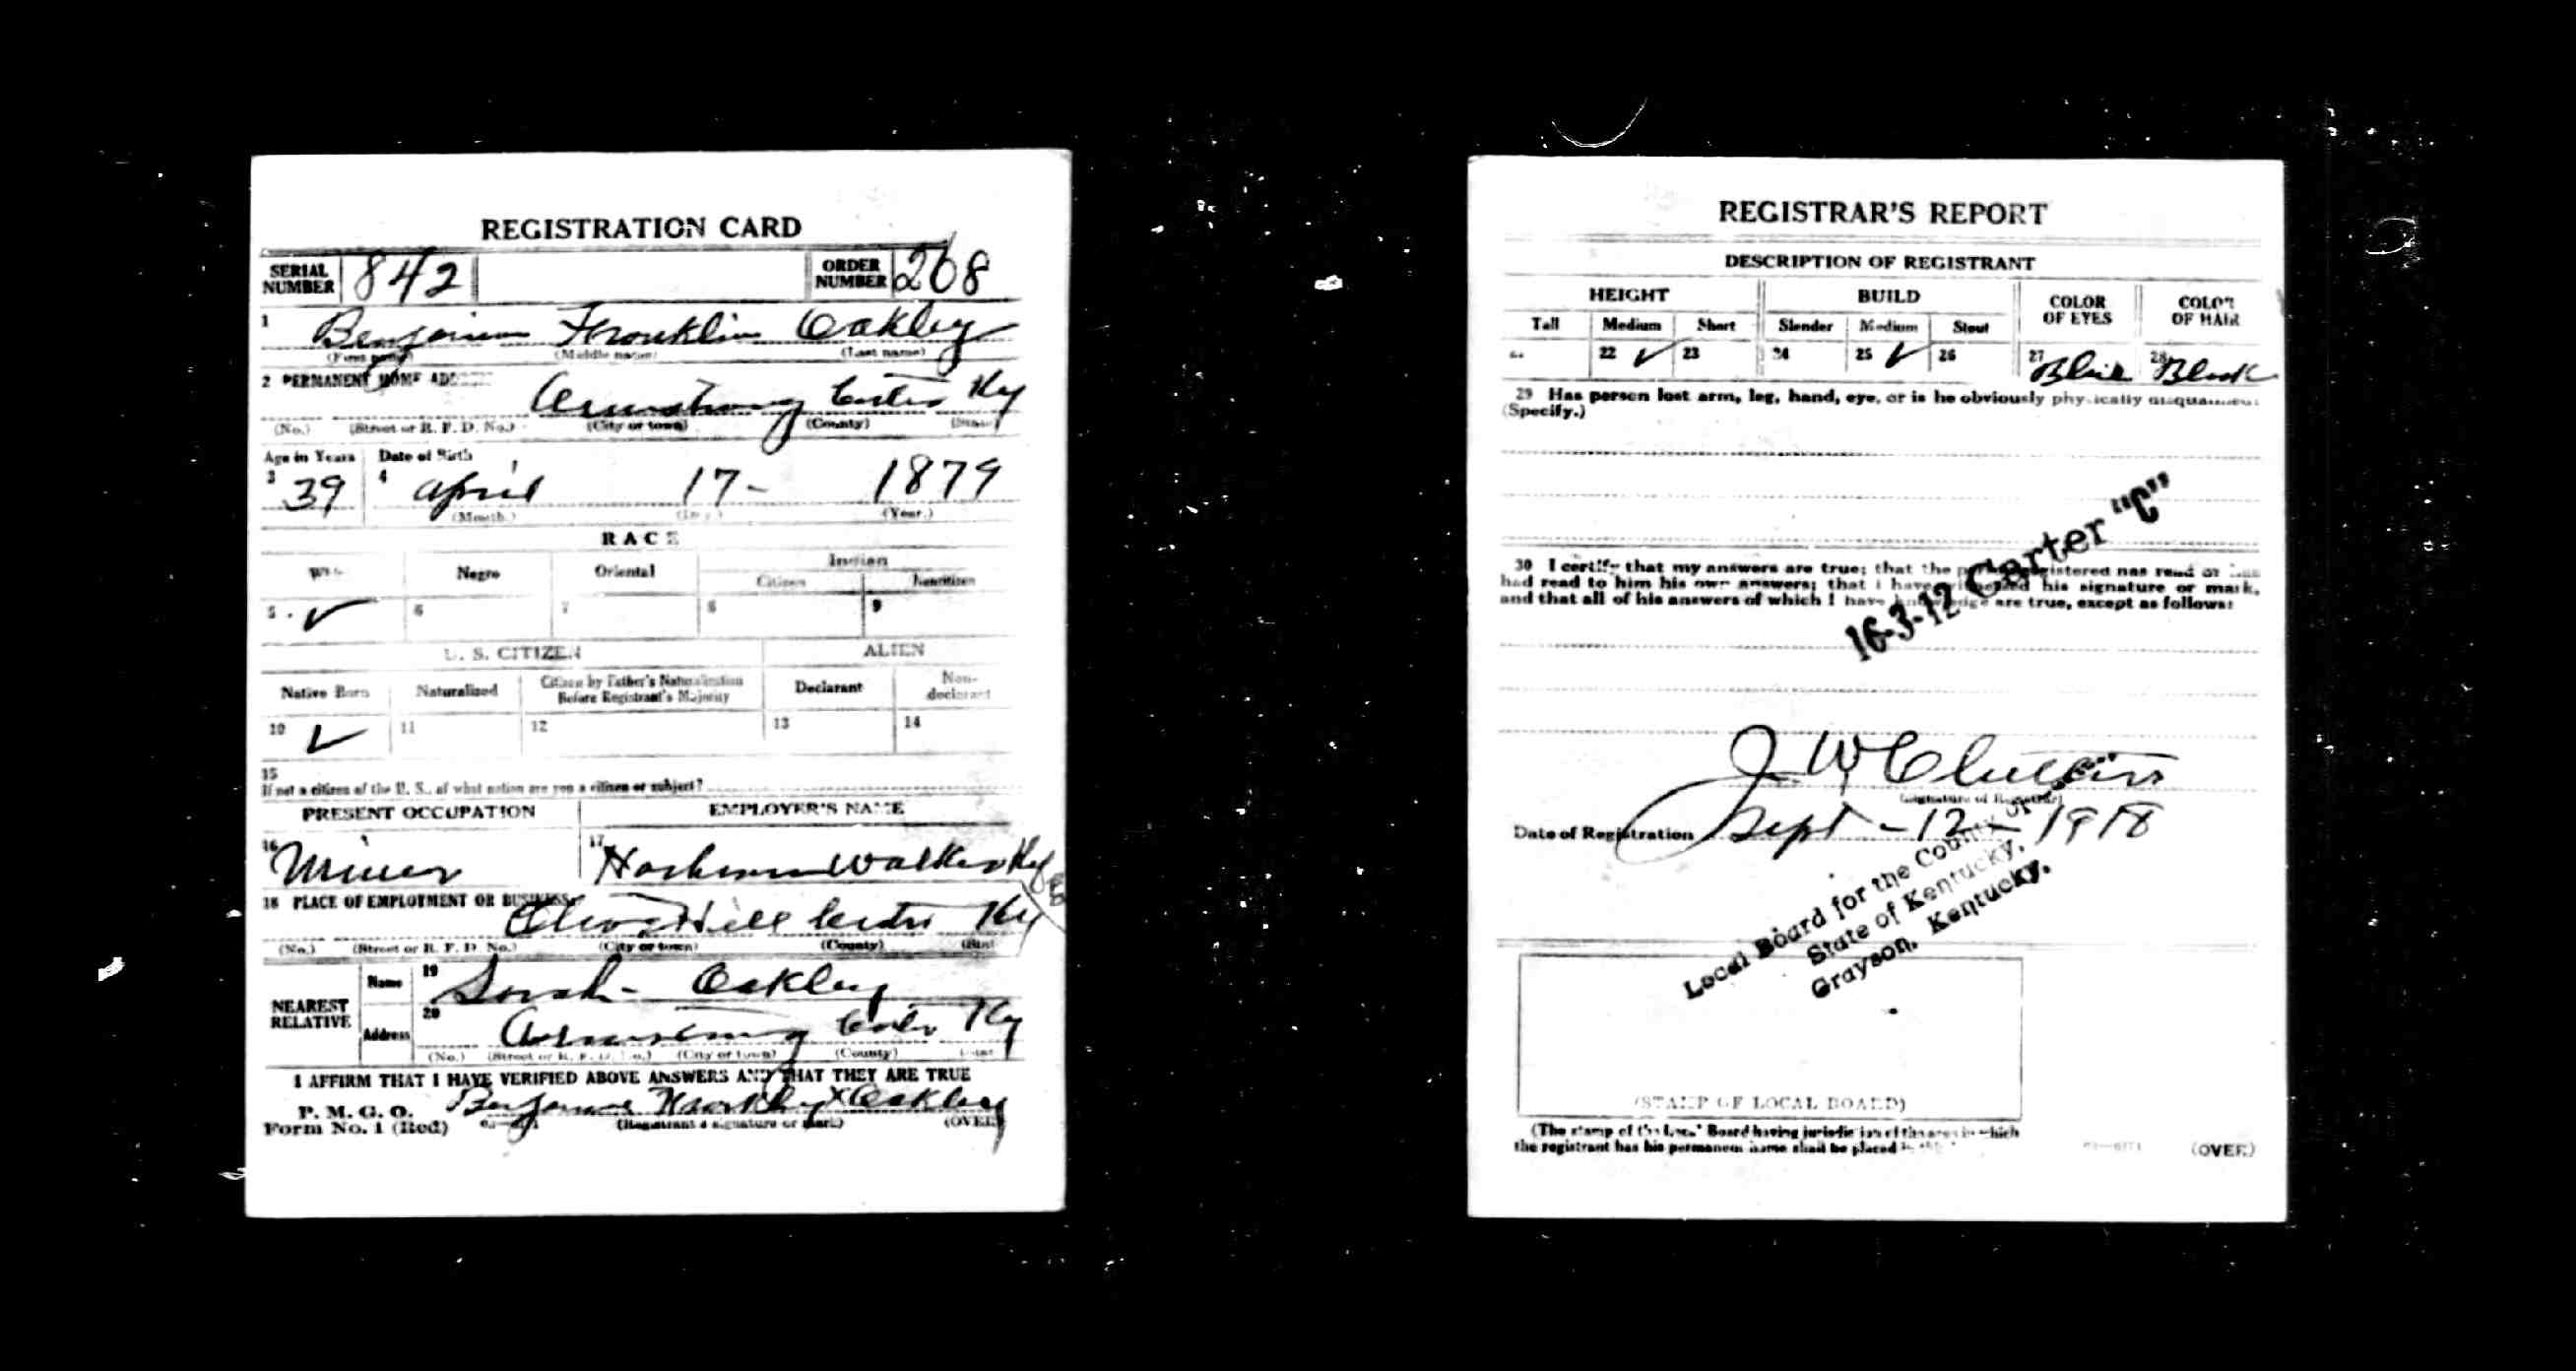 REGISTRATION CARD
SERIAL NUMBER 842 ORDER NUMBER 268
1 Benjamin Franklin Oakley
(First name) (Middle name) (Last name)
2 PERMANENT HOME ADDRESS
Armstrong Carter Ky
(No.) (Street or R. F. D. No.) (City or town) (County) (State)
Age in Years Date of Birth
3 39 4 April 17- 1879
(Month.) (Day.) (Year.)
RACE
White Negro Oriental Indian
Citizen Noncitizen
5 ✓ 6 7 8 9
U. S. CITIZEN ALIEN
Native Born Naturalized Citizen by Father's Naturalization Before Registrant's Majority Declarant Non-declarant
10 ✓ 11 12 13 14
15
If not a citizen of the U. S., of what nation are you a citizen or subject?
PRESENT OCCUPATION EMPLOYER'S NAME
16 Miner 17 Walker
18 PLACE OF EMPLOYMENT OR BUSINESS:
Olive Hill Carter Ky
(No.) (Street or R. F. D. No.) (City or town) (County) (State)
NEAREST RELATIVE
Name 19 Sarah - Oakley
Address 20 Armstrong Carter Ky
(No.) (Street or R. F. D. No.) (City or town) (County) (State)
I AFFIRM THAT I HAVE VERIFIED ABOVE ANSWERS AND THAT THEY ARE TRUE
P. M. G. O.
Form No. 1 (Red) Benjamin Frankly x Oakley
(Registrant's signature or mark) (OVER)
REGISTRAR'S REPORT
DESCRIPTION OF REGISTRANT
HEIGHT BUILD COLOR OF EYES COLOR OF HAIR
Tall Medium Short Slender Medium Stout
21 22 ✓ 23 24 25 ✓ 26 27 28 Black
29 Has person lost arm, leg, hand, eye, or is he obviously physically disqualified?
(Specify.)
16-3-12 Carter "C"
30 I certify that my answers are true; that the person registered has read or has
had read to him his own answers; that I have witnessed his signature or mark,
and that all of his answers of which I have knowledge are true, except as follows:
J W
(Signature of Registrar)
Date of Registration Sept - 12 - 1918
Local Board for the County of
State of Kentucky,
Grayson, Kentucky.
(STAMP OF LOCAL BOARD)
(The stamp of the Local Board having jurisdiction of the area in which
the registrant has his permanent home shall be placed in this
(OVER)